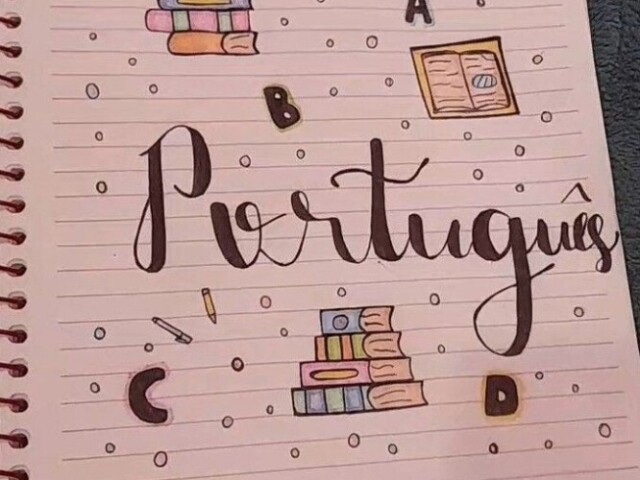 A
B
Português
C
D